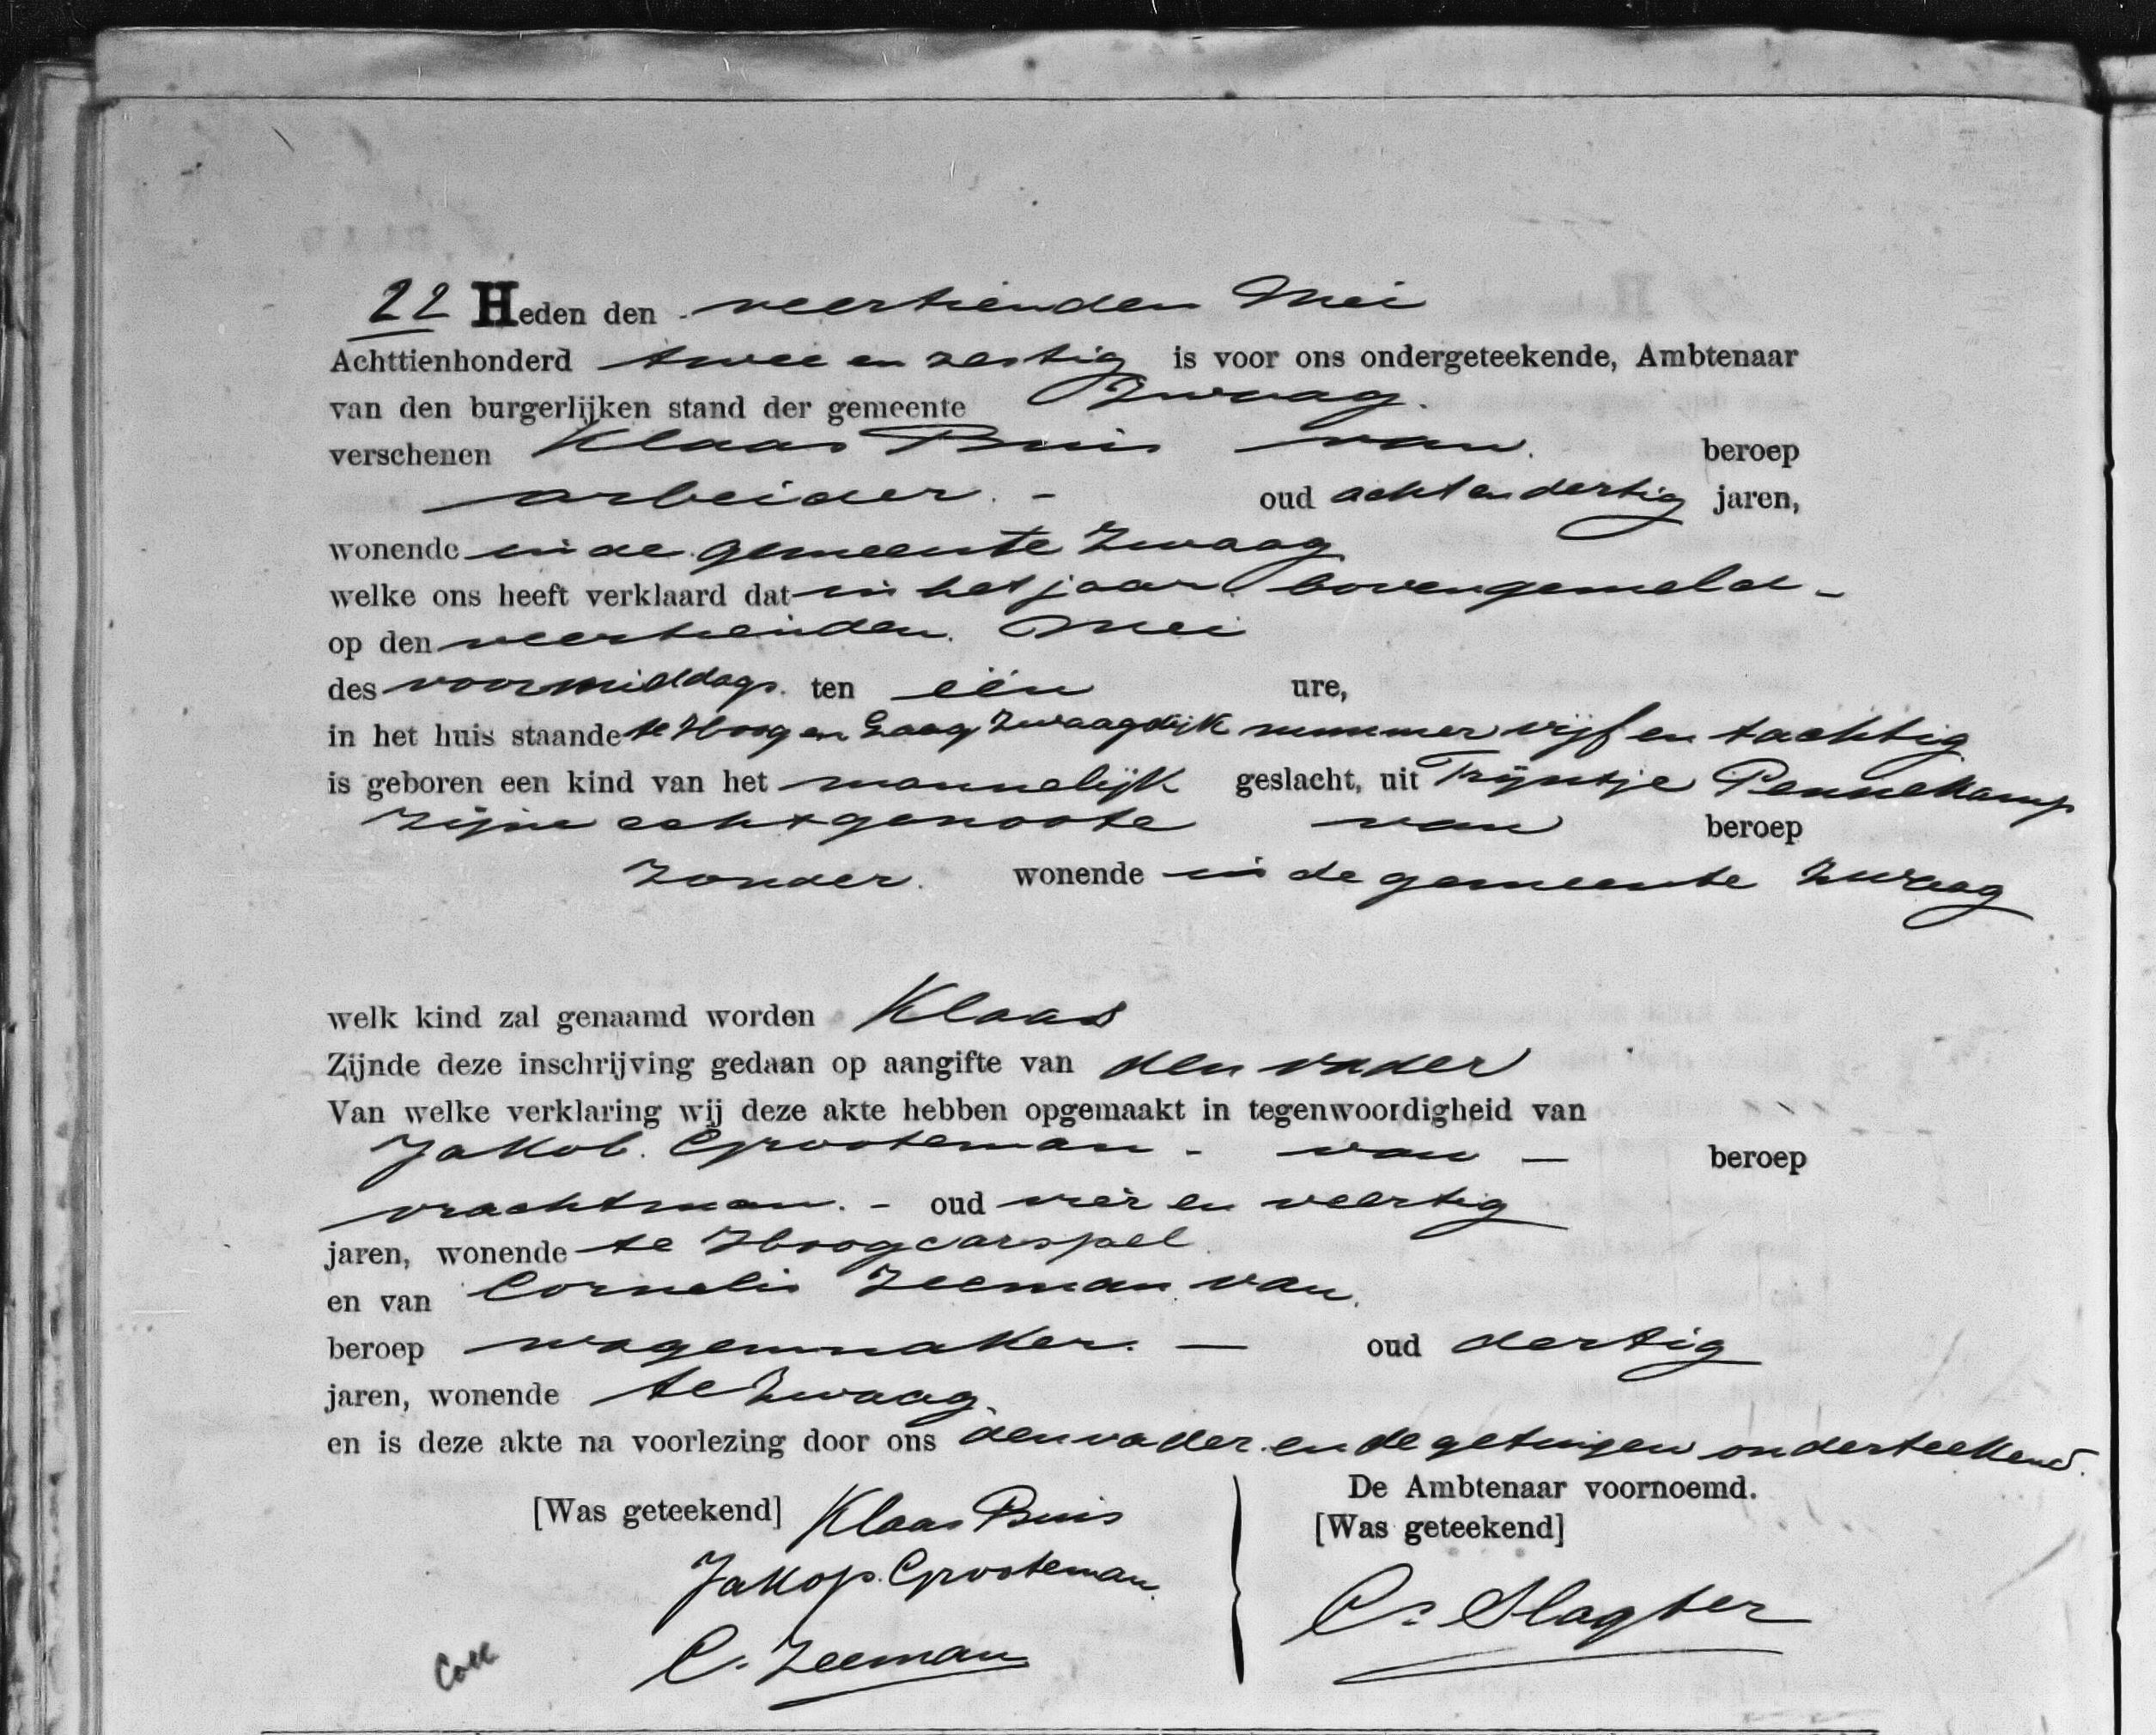 22 Heden den veertienden Mei
Achttienhonderd twee en zestig is voor ons ondergeteekende, Ambtenaar
van den burgerlijken stand der gemeente Zwaag.
verschenen Klaas Buis van beroep
arbeider. - oud acht en dertig jaren,
wonende in de gemeente Zwaag
welke ons heeft verklaard dat in het jaar bovengemeld -
op den veertienden Mei
des voormiddags ten één ure,
in het huis staande te Hoog en Laag Zwaagdijk nummer vijf en tachtig
is geboren een kind van het mannelijk geslacht, uit Trijntje Pennekamp
zijne echtgenoote van beroep
zonder. wonende in de gemeente Zwaag
welk kind zal genaamd worden Klaas
Zijnde deze inschrijving gedaan op aangifte van den vader
Van welke verklaring wij deze akte hebben opgemaakt in tegenwoordigheid van
Jakob Grooteman - van — beroep
vrachtman. - oud vier en veertig
jaren, wonende te Hoogcarspel
en van Cornelis Zeeman van
beroep wagenmaker. — oud dertig
jaren, wonende te Zwaag
en is deze akte na voorlezing door ons den vader en de getuigen onderteekend.
De Ambtenaar voornoemd.
[Was geteekend] Klaas Buis
[Was geteekend]
Jakop Grooteman
Cs Slagter
C. Zeeman
Coll